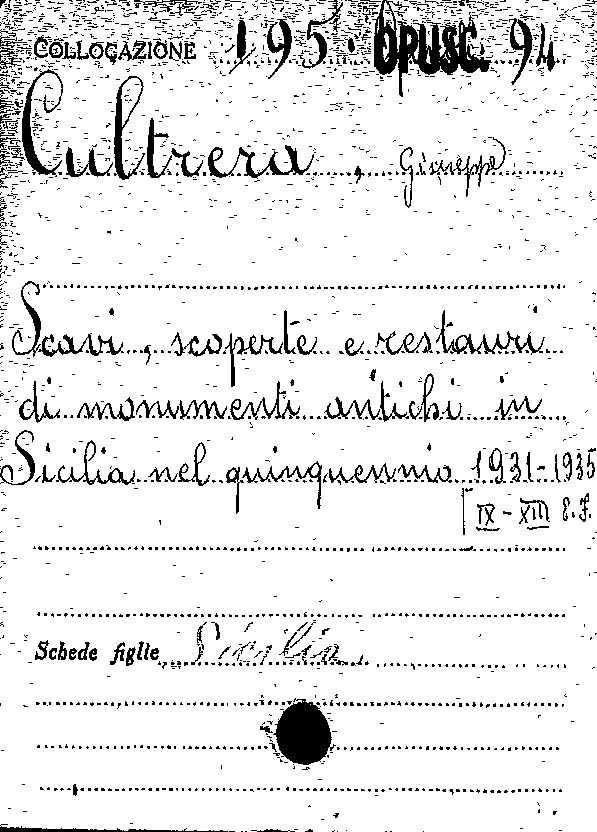 COLLOCAZIONE 195. OPUSC. 94
Cultrera, Giuseppe
Scavi, scoperte e restauri
di monumenti antichi in
Sicilia nel quinquennio 1931-1935
[IX-XIII E.F.
Schede figlie Sicilia